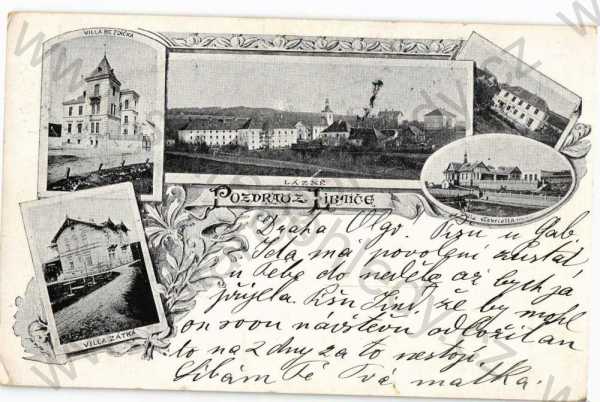 VILLA BEZDIČKA
LÁZNĚ
POZDRAV Z LIBNIČE
Villa Gabriella
VILLA ZÁTKA
Drahá Olgo. Píšu u Gab.
Jela má povolení zůstat
u Tebe do neděle až bych já
přijela. Píšu Jind. že by mohl
on svou návštevu odložit an
to na 2 dny za to nestojí.
Líbám Tě Tvá matka.